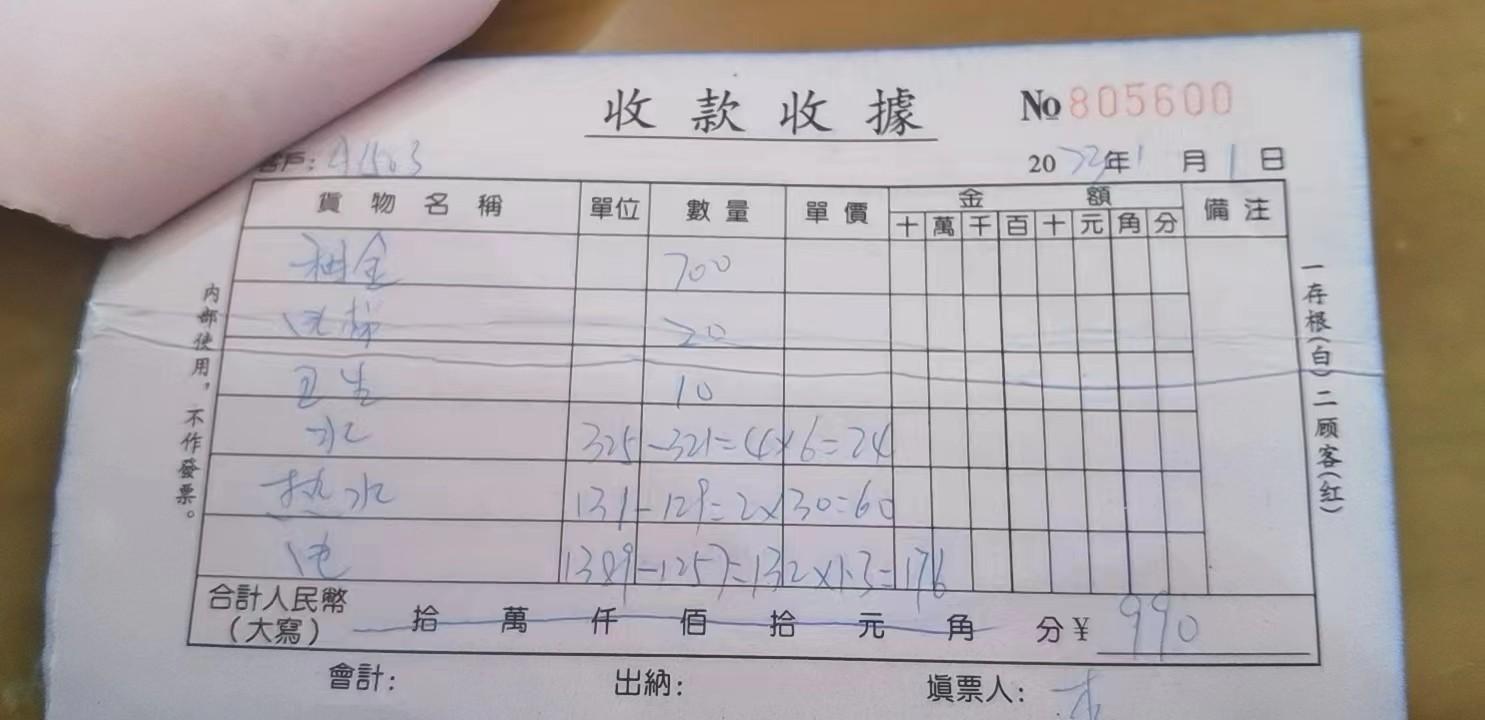 收款收據
No 805600
客戶: A1503
2022年1月1日
貨物名稱 單位 數量 單價 金額 備注
十 萬 千 百 十 元 角 分
租金 700
电梯 20
卫生 10
水 325-321=4×6=24
热水 131-129=2×30=60
电 1389-1257=132×1.3=176
合計人民幣(大寫) 拾 萬 仟 佰 拾 元 角 分 ¥ 990
會計: 出納: 填票人:
内部使用,不作發票。
一存根(白)二顾客(红)